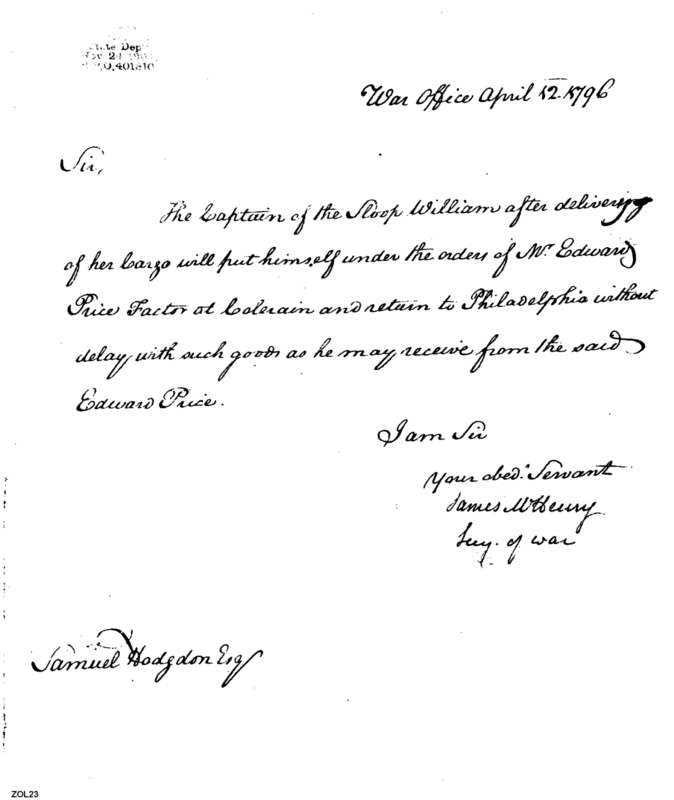 State Dep
Nov 24 190
401810
War Office April 12. 1796
Sir,
The Captain of the Sloop William after delivering
of her Cargo will put himself under the orders of Mr. Edward
Price Factor at Colerain and return to Philadelphia without
delay, with such goods as he may receive from the said
Edward Price.
I am Sir
Your obedt. Servant
James McHenry
Secy. of war
Samuel Hodgdon Esq
ZOL23